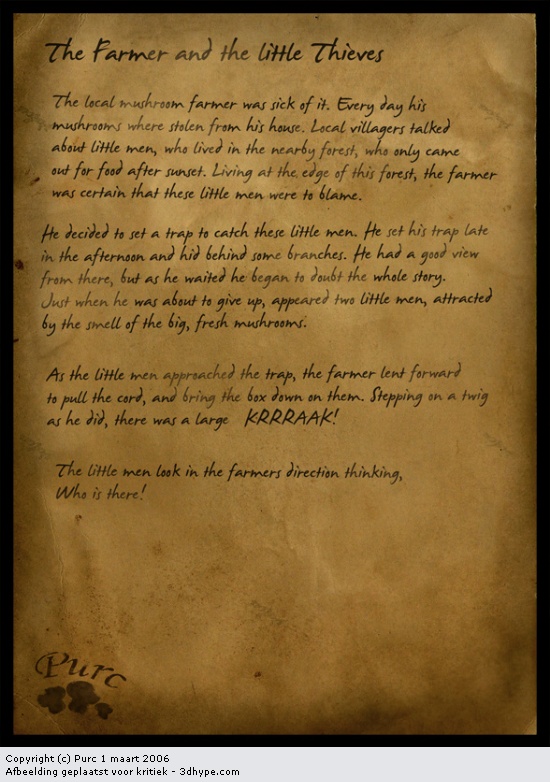 The Farmer and the little Thieves
The local mushroom farmer was sick of it. Every day his
mushrooms where stolen from his house. Local villagers talked
about little men, who lived in the nearby forest, who only came
out for food after sunset. Living at the edge of this forest, the farmer
was certain that these little men were to blame.
He decided to set a trap to catch these little men. He set his trap late
in the afternoon and hid behind some branches. He had a good view
from there, but as he waited he began to doubt the whole story.
Just when he was about to give up, appeared two little men, attracted
by the smell of the big, fresh mushrooms.
As the little men approached the trap, the farmer lent forward
to pull the cord, and bring the box down on them. Stepping on a twig
as he did, there was a large KRRRAAK!
The little men look in the farmers direction thinking,
Who is there!
Purc
Copyright (c) Purc 1 maart 2006
Afbeelding geplaatst voor kritiek - 3dhype.com